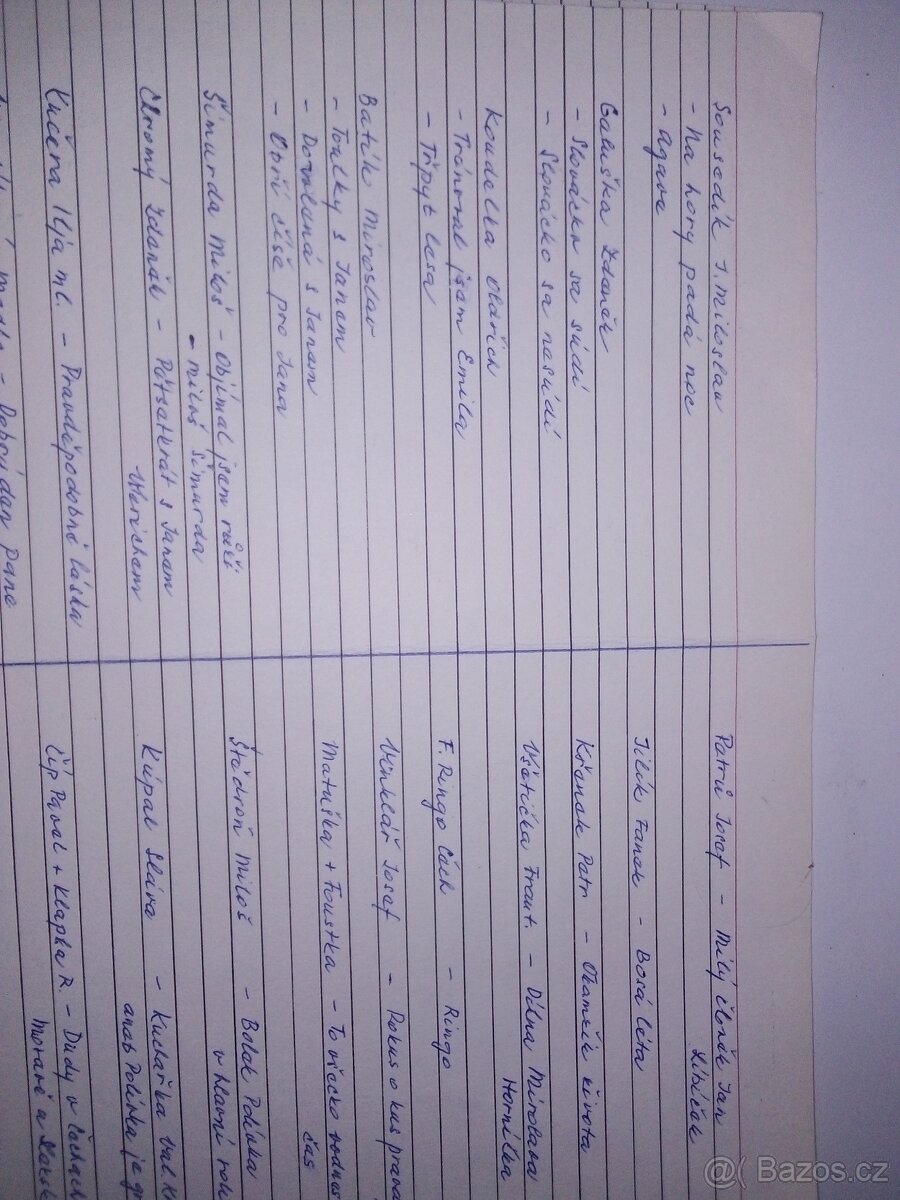 Sousedík J. Miloslav
- Na hory padá noc
- Agave
Galuška Zdeněk
- Slovácko sa súdí
- Slovácko sa nesúdí
Koudelka Oldřich
- Trénoval jsem Emila
- Třpyt lesa
Batík Miroslav
- Toulky s Janem
- Dovolená s Janem
- Obří číše pro Jana
Šimurda Miloš - Objímal jsem růži
- Miloš Šimurda
Chromý Zdeněk - Pětsetkrát s Janem
Werichem
Kučera Ilja ml. - Pravděpodobné láska
pane
Patrů Josef - Milý člověk Jan
Libíček
Jilík Fanek - Bosá léta
Křenek Petr - Okamžik života
Všetička Frant. - Dílna Miroslava
Horníčka
F. Ringo Čech - Ringo
Vinklář Josef - Pokus o kus prav
Matuška + Foustka - To všecko vodnes
čas
Štědroň Miloš - Bolek Polívka
v hlavní roli
Kúpal Sláva - Kuchařka
aneb Polívka je
Číp Pavel + Klapka R. - Dudy v Čechách
Moravě a